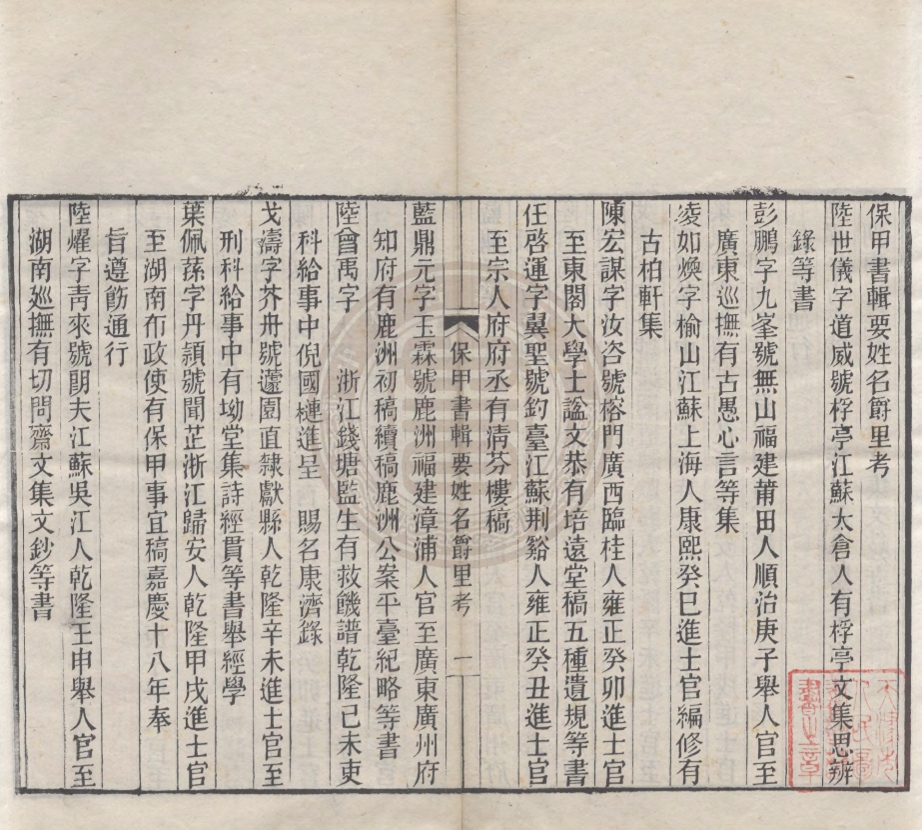 保甲書輯要姓名爵里考
陸世儀字道威號桴亭江蘇太倉人有桴亭文集思辨
錄等書
彭鵬字九峯號無山福建莆田人順治庚子舉人官至
廣東巡撫有古愚心言等集
凌如煥字榆山江蘇上海人康熙癸巳進士官編修有
古柏軒集
陳宏謀字汝咨號榕門廣西臨桂人雍正癸卯進士官
至東閣大學士謚文恭有培遠堂稿五種遺規等書
任啓運字翼聖號釣臺江蘇荆谿人雍正癸丑進士官
至宗人府府丞有淸芬樓稿
保甲書輯要姓名爵里考 一
藍鼎元字玉霖號鹿洲福建漳浦人官至廣東廣州府
知府有鹿洲初稿續稿鹿洲公案平臺紀略等書
陸曾禹字 浙江錢塘監生有救饑譜乾隆己未吏
科給事中倪國槤進呈 賜名康濟錄
戈濤字芥舟號蘧園直隸獻縣人乾隆辛未進士官至
刑科給事中有坳堂集詩經貫等書舉經學
葉佩蓀字丹頴號聞芷浙江歸安人乾隆甲戌進士官
至湖南布政使有保甲事宜稿嘉慶十八年奉
旨遵飭通行
陸燿字靑來號朗夫江蘇吳江人乾隆壬申舉人官至
湖南廵撫有切問齋文集文鈔等書